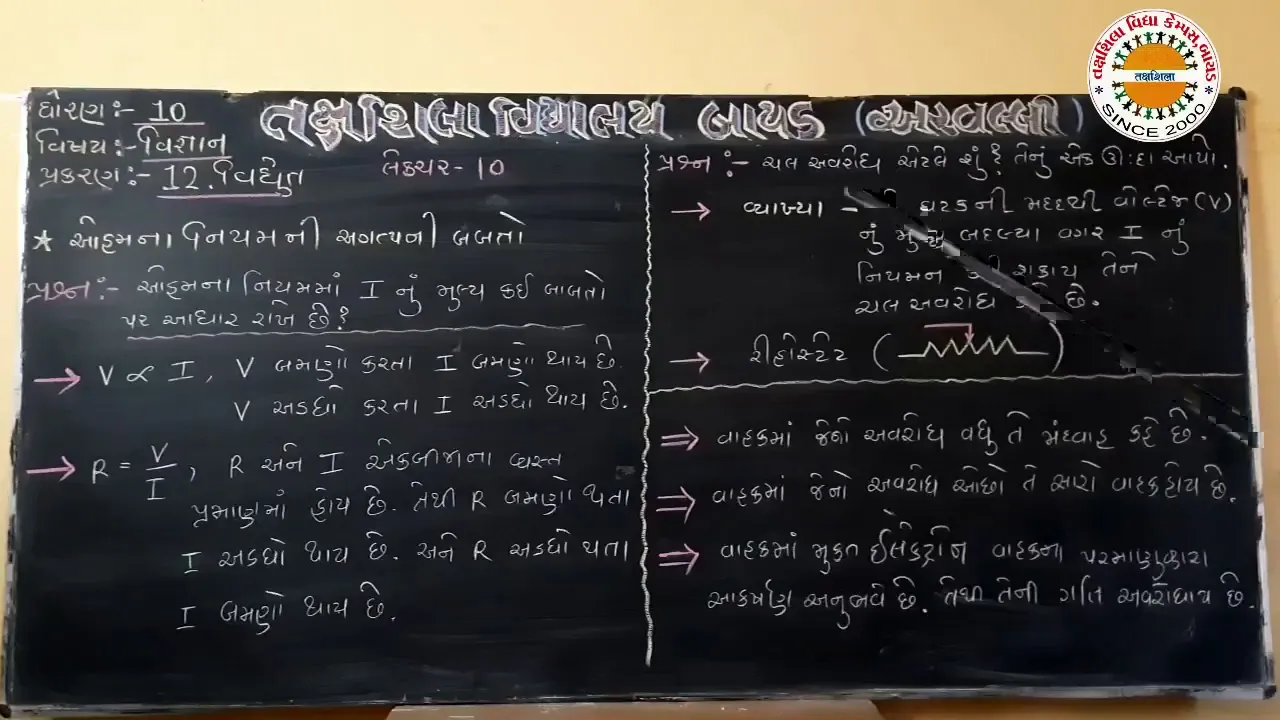 ધોરણ :- 10
વિષય :- વિજ્ઞાન
પ્રકરણ :- 12. વિદ્યુત
તક્ષશિલા વિદ્યાલય બાયડ (અરવલ્લી)
લેક્ચર - 10
★ ઓહમના નિયમની અગત્યની બાબતો
પ્રશ્ન :- ઓહમના નિયમમાં I નું મુલ્ય કઈ બાબતો
પર આધાર રાખે છે?
→ V ∝ I, V બમણો કરતા I બમણો થાય છે.
V અડધો કરતા I અડધો થાય છે.
→ R = V/I, R અને I એકબીજાના વ્યસ્ત
પ્રમાણમાં હોય છે. તેથી R બમણો થતા
I અડધો થાય છે. અને R અડધો થતા
I બમણો થાય છે.
પ્રશ્ન :- ચલ અવરોધ એટલે શું? તેનું એક ઉ:દા આપો.
→ વ્યાખ્યા - ઘટકની મદદથી વોલ્ટેજ (V)
નું મુલ્ય બદલ્યા વગર I નું
નિયમન કરી શકાય તેને
ચલ અવરોધ કહે છે.
→ રીહોસ્ટેટ
⇒ વાહકમાં જેનો અવરોધ વધુ તે મંદવાહક કહે છે.
⇒ વાહકમાં જેનો અવરોધ ઓછો તે સારો વાહક હોય છે.
⇒ વાહકમાં મુક્ત ઈલેક્ટ્રોન વાહકના પરમાણુદ્વારા
આકર્ષણ અનુભવે છે. તેથી તેની ગતિ અવરોધાય છે.
તક્ષશિલા વિદ્યા કેમ્પસ, બાયડ
તક્ષશિલા
* SINCE 2000 *